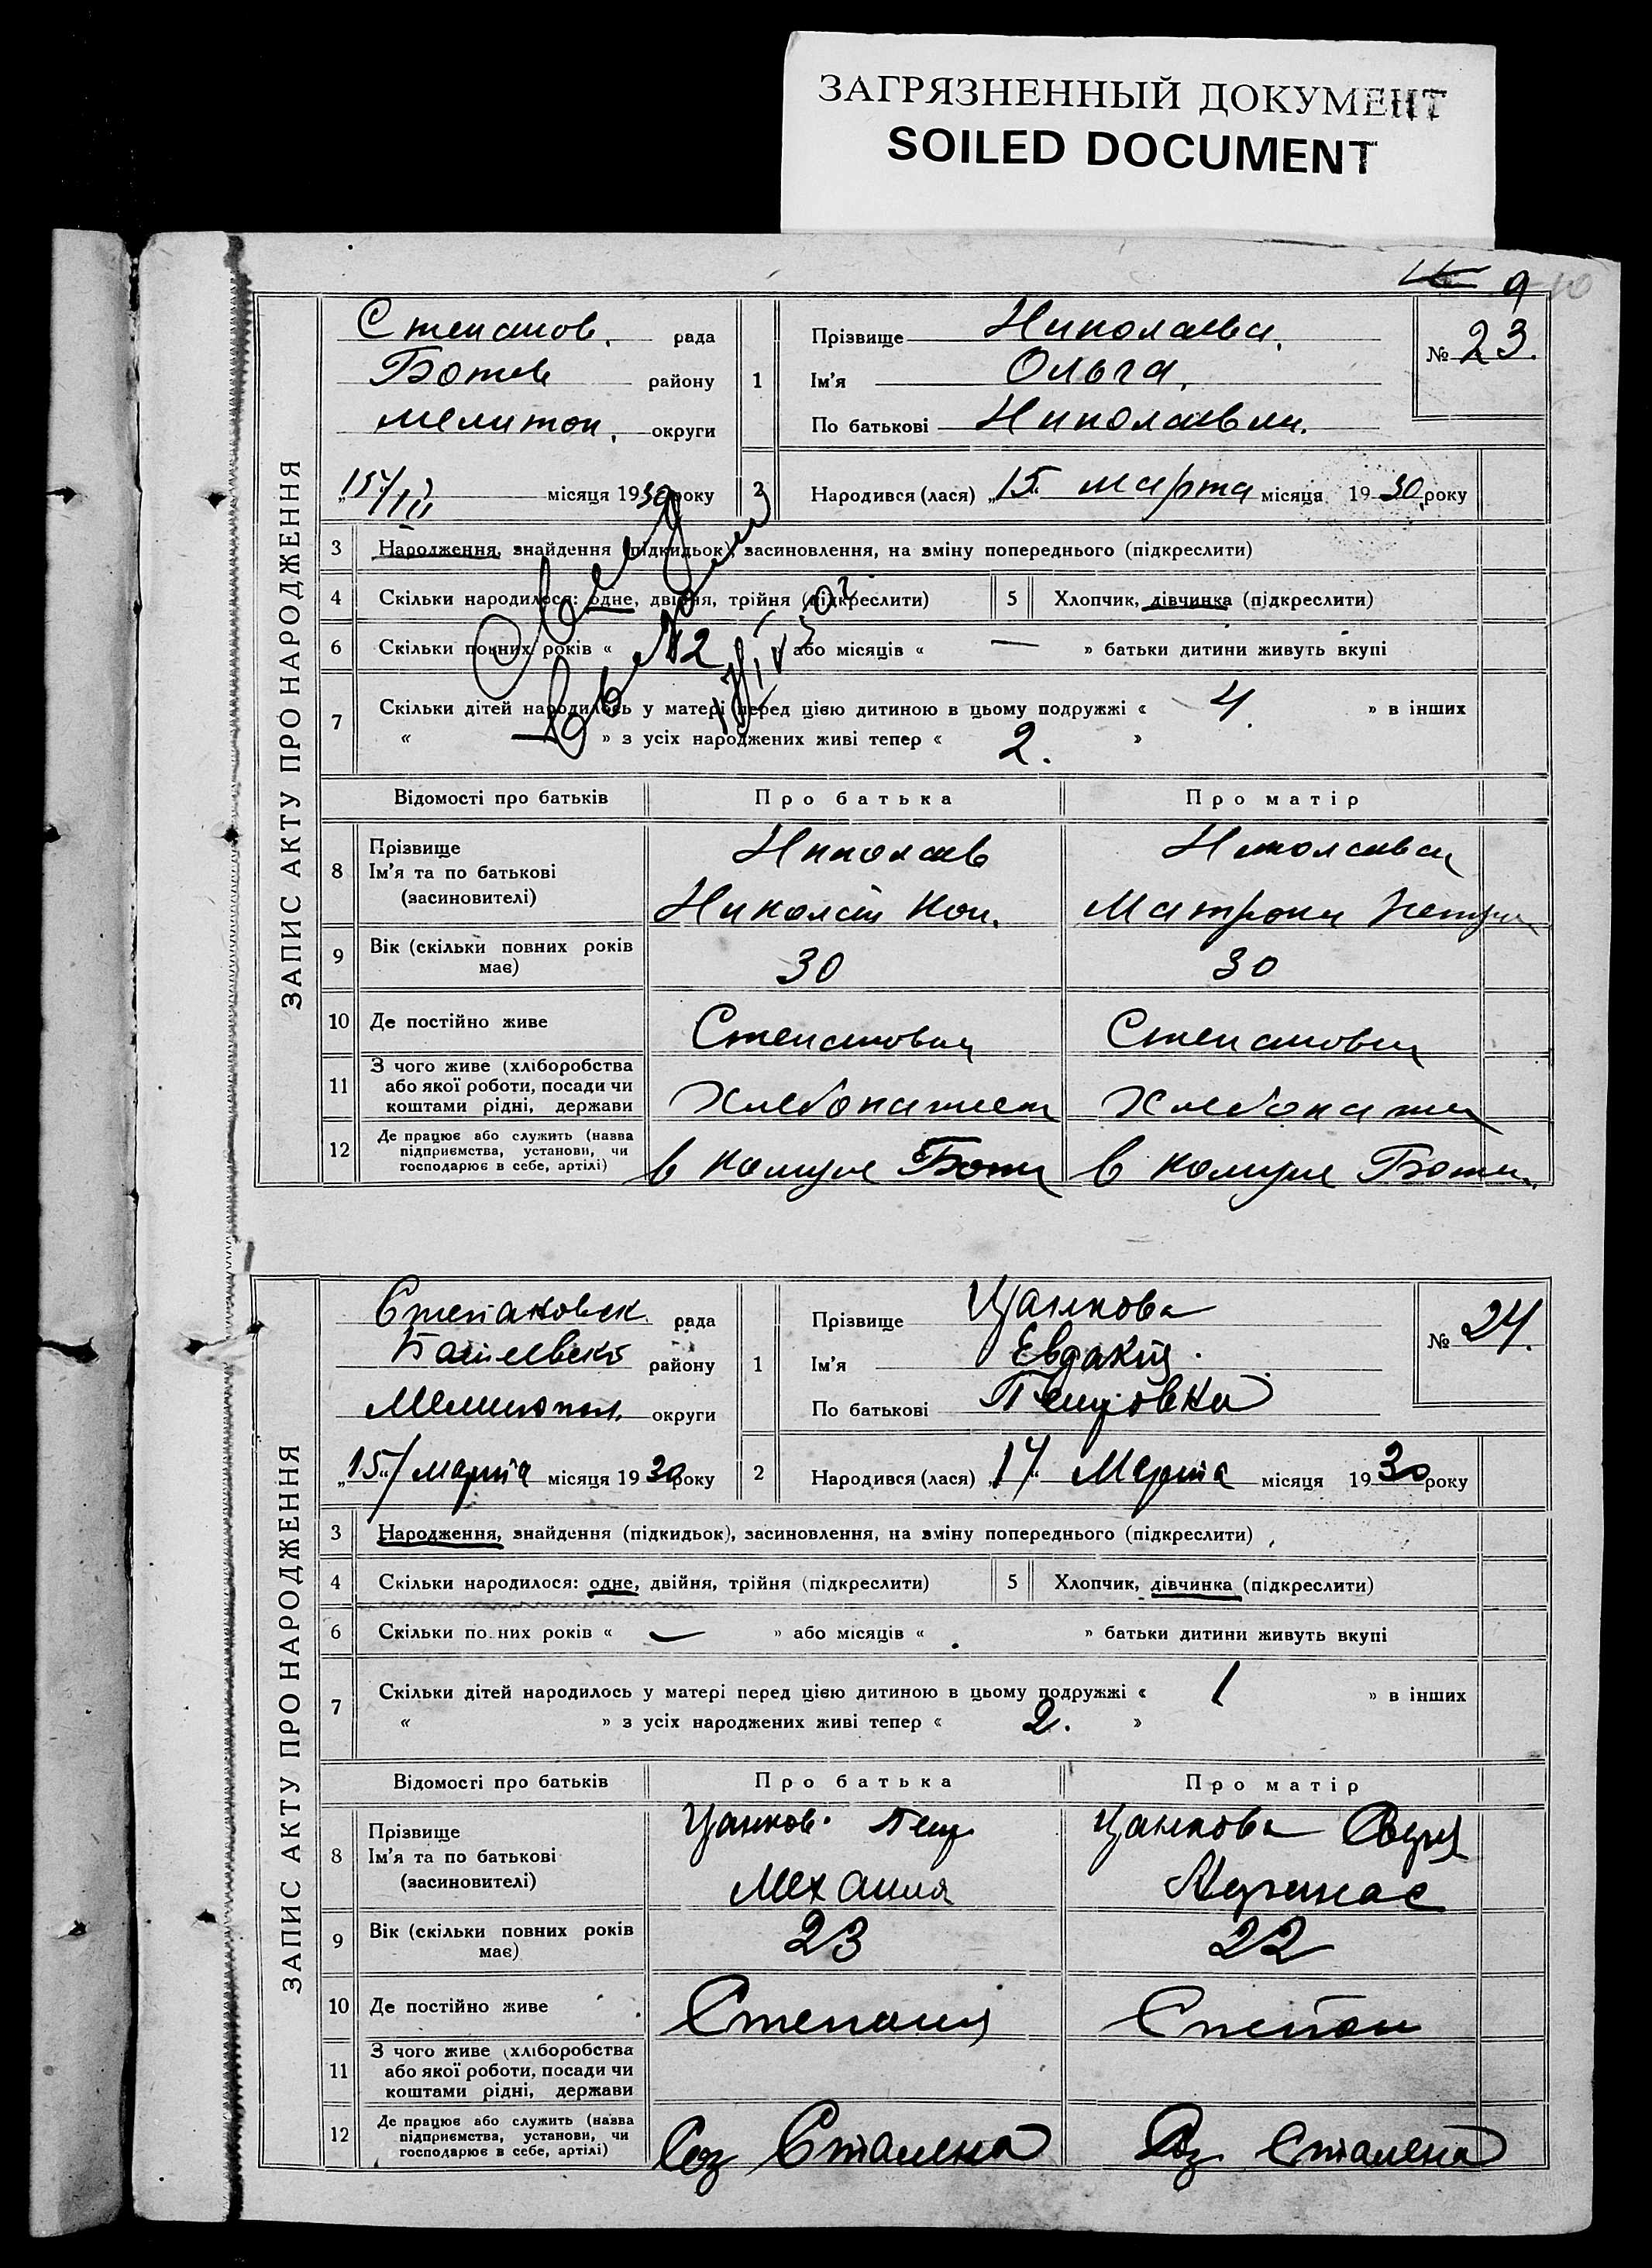 ЗАГРЯЗНЕННЫЙ ДОКУМЕНТ
SOILED DOCUMENT
9 10
ЗАПИС АКТУ ПРО НАРОДЖЕННЯ
Степанов. рада
Ботев району
Мелитоп. округи
„15/III місяця 1930 року
1 Прізвище Николаева.
Ім'я Ольга.
По батькові Николаевн.
№ 23.
2 Народився (лася) „15" марта місяця 1930 року
3 Народження, знайдення (підкидьок), засиновлення, на зміну попереднього (підкреслити)
4 Скільки народилося: одне, двійня, трійня (підкреслити) 5 Хлопчик, дівчинка (підкреслити)
6 Скільки повних років « » або місяців « — » батьки дитини живуть вкупі
№2
7 Скільки дітей народилось у матері перед цією дитиною в цьому подружжі « 4. » в інших
« — » з усіх народжених живі тепер « 2. »
Відомості про батьків Про батька Про матір
8 Прізвище Николаев Николаева
Ім'я та по батькові
(засиновителі) Николай Ник. Матрона Петр
9 Вік (скільки повних років має) 30 30
10 Де постійно живе Степановка Степановка
11 З чого живе (хліборобства
або якої роботи, посади чи
коштами рідні, держави Хлебопашест Хлебопаше
12 Де працює або служить (назва
підприємства, установи, чи
господарює в себе, артілі) в комуне Боти в комуне Боти
ЗАПИС АКТУ ПРО НАРОДЖЕННЯ
Степановск рада
району
Мелитопол. округи
„15"/ марта місяця 1930 року
1 Прізвище Цанкова
Ім'я Евдакия
По батькові Петровна
№ 24.
2 Народився (лася) „14" Марта місяця 1930 року
3 Народження, знайдення (підкидьок), засиновлення, на зміну попереднього (підкреслити)
4 Скільки народилося: одне, двійня, трійня (підкреслити) 5 Хлопчик, дівчинка (підкреслити)
6 Скільки по.них років « — » або місяців « » батьки дитини живуть вкупі
7 Скільки дітей народилось у матері перед цією дитиною в цьому подружжі « 1 » в інших
« » з усіх народжених живі тепер « 2. »
Відомості про батьків Про батька Про матір
8 Прізвище Цанков Петр Цанкова
Ім'я та по батькові
(засиновителі)
9 Вік (скільки повних років має) 23 22
10 Де постійно живе Степан
11 З чого живе (хліборобства
або якої роботи, посади чи
коштами рідні, держави
12 Де працює або служить (назва
підприємства, установи, чи
господарює в себе, артілі) Соз Сталена Соз Сталена